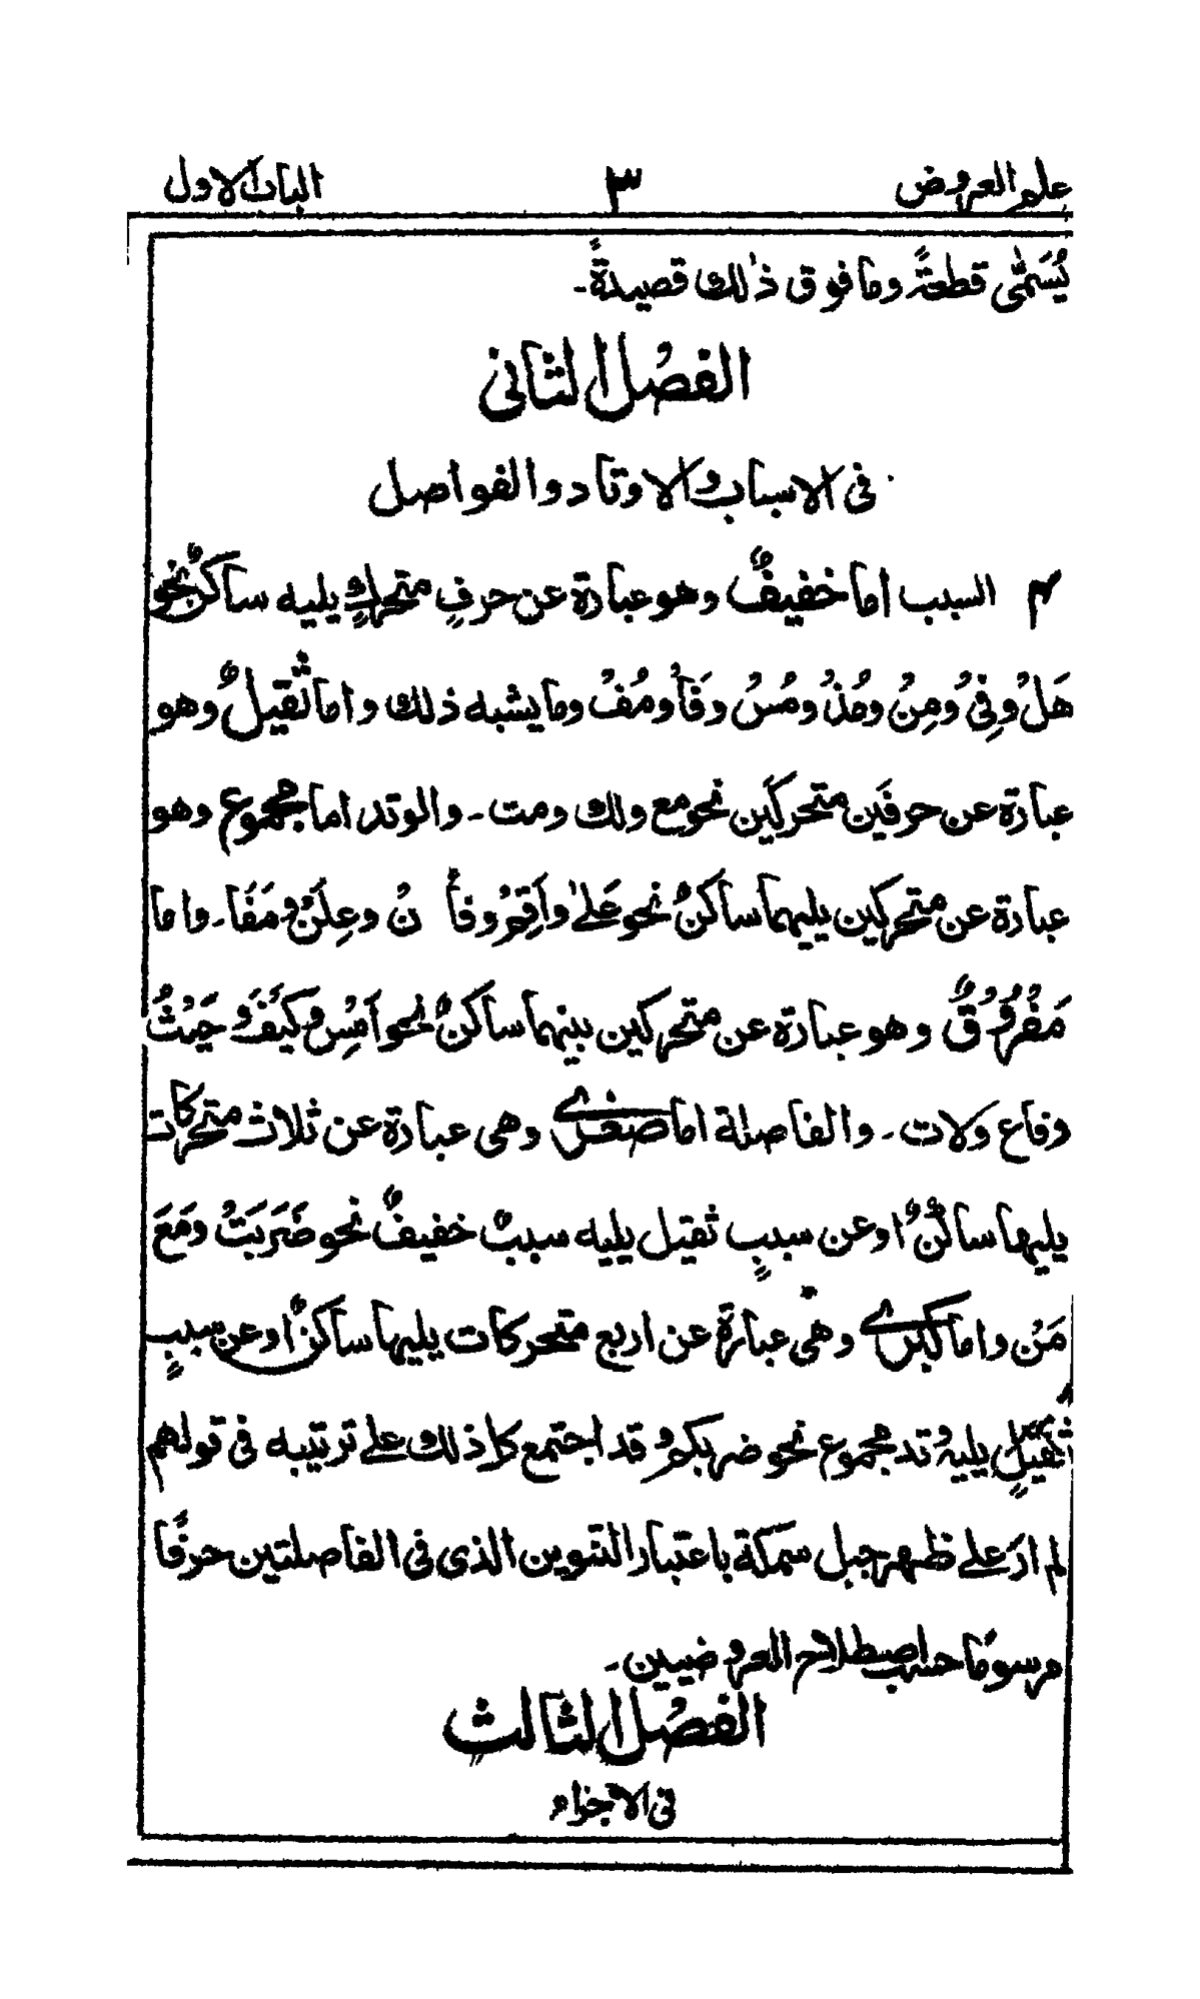 علم العروض ٣ الباب الاول
يُسَمّٰى قطعةً وما فوق ذٰلك قصيدةً۔
الفصل الثانى
فى الاسباب والاوتاد والفواصل
٤ السبب اما خفيفٌ وهو عبارة عن حرفٍ متحركٍ يليه ساكنٌ نحو
هَلْ وفِىْ ومِنْ ومُذْ ومُسْ وفَاْ ومُفْ وما يشبه ذلك واما ثقيلٌ وهو
عبارة عن حرفَين متحركَين نحو مع ولك ومت۔ والوتد اما مجموع وهو
عبارة عن متحركين يليهما ساكنٌ نحو عَلىٰ واَقِمْ وفأ نْ وعِلُنْ ومَفَا۔ واما
مَفْرُوْقٌ وهو عبارة عن متحركين بينهما ساكنٌ نحو اَمْسِ وكَيْفَ وحَيْثُ
وفاع ولات۔ والفاصلة اما صغرٰى وهى عبارة عن ثلاث متحركات
يليها ساكنٌ او عن سببٍ ثقيل يليه سببٌ خفيفٌ نحو ضَرَبَتْ ومَعَ
مَنْ واما كبرٰى وهى عبارة عن اربع متحركات يليها ساكنٌ او عن سببٍ
ثقيلٍ يليهِ وتد مجموع نحو ضربكم وقد اجتمع كل ذلك على ترتيبه فى قولهم
لم ارَ على ظهر جبل سمكة باعتبار التنوين الذى فى الفاصلتين حرفًا
مرسومًا حسب اصطلاح العروضيين۔
الفصل الثالث
فى الاجزاء